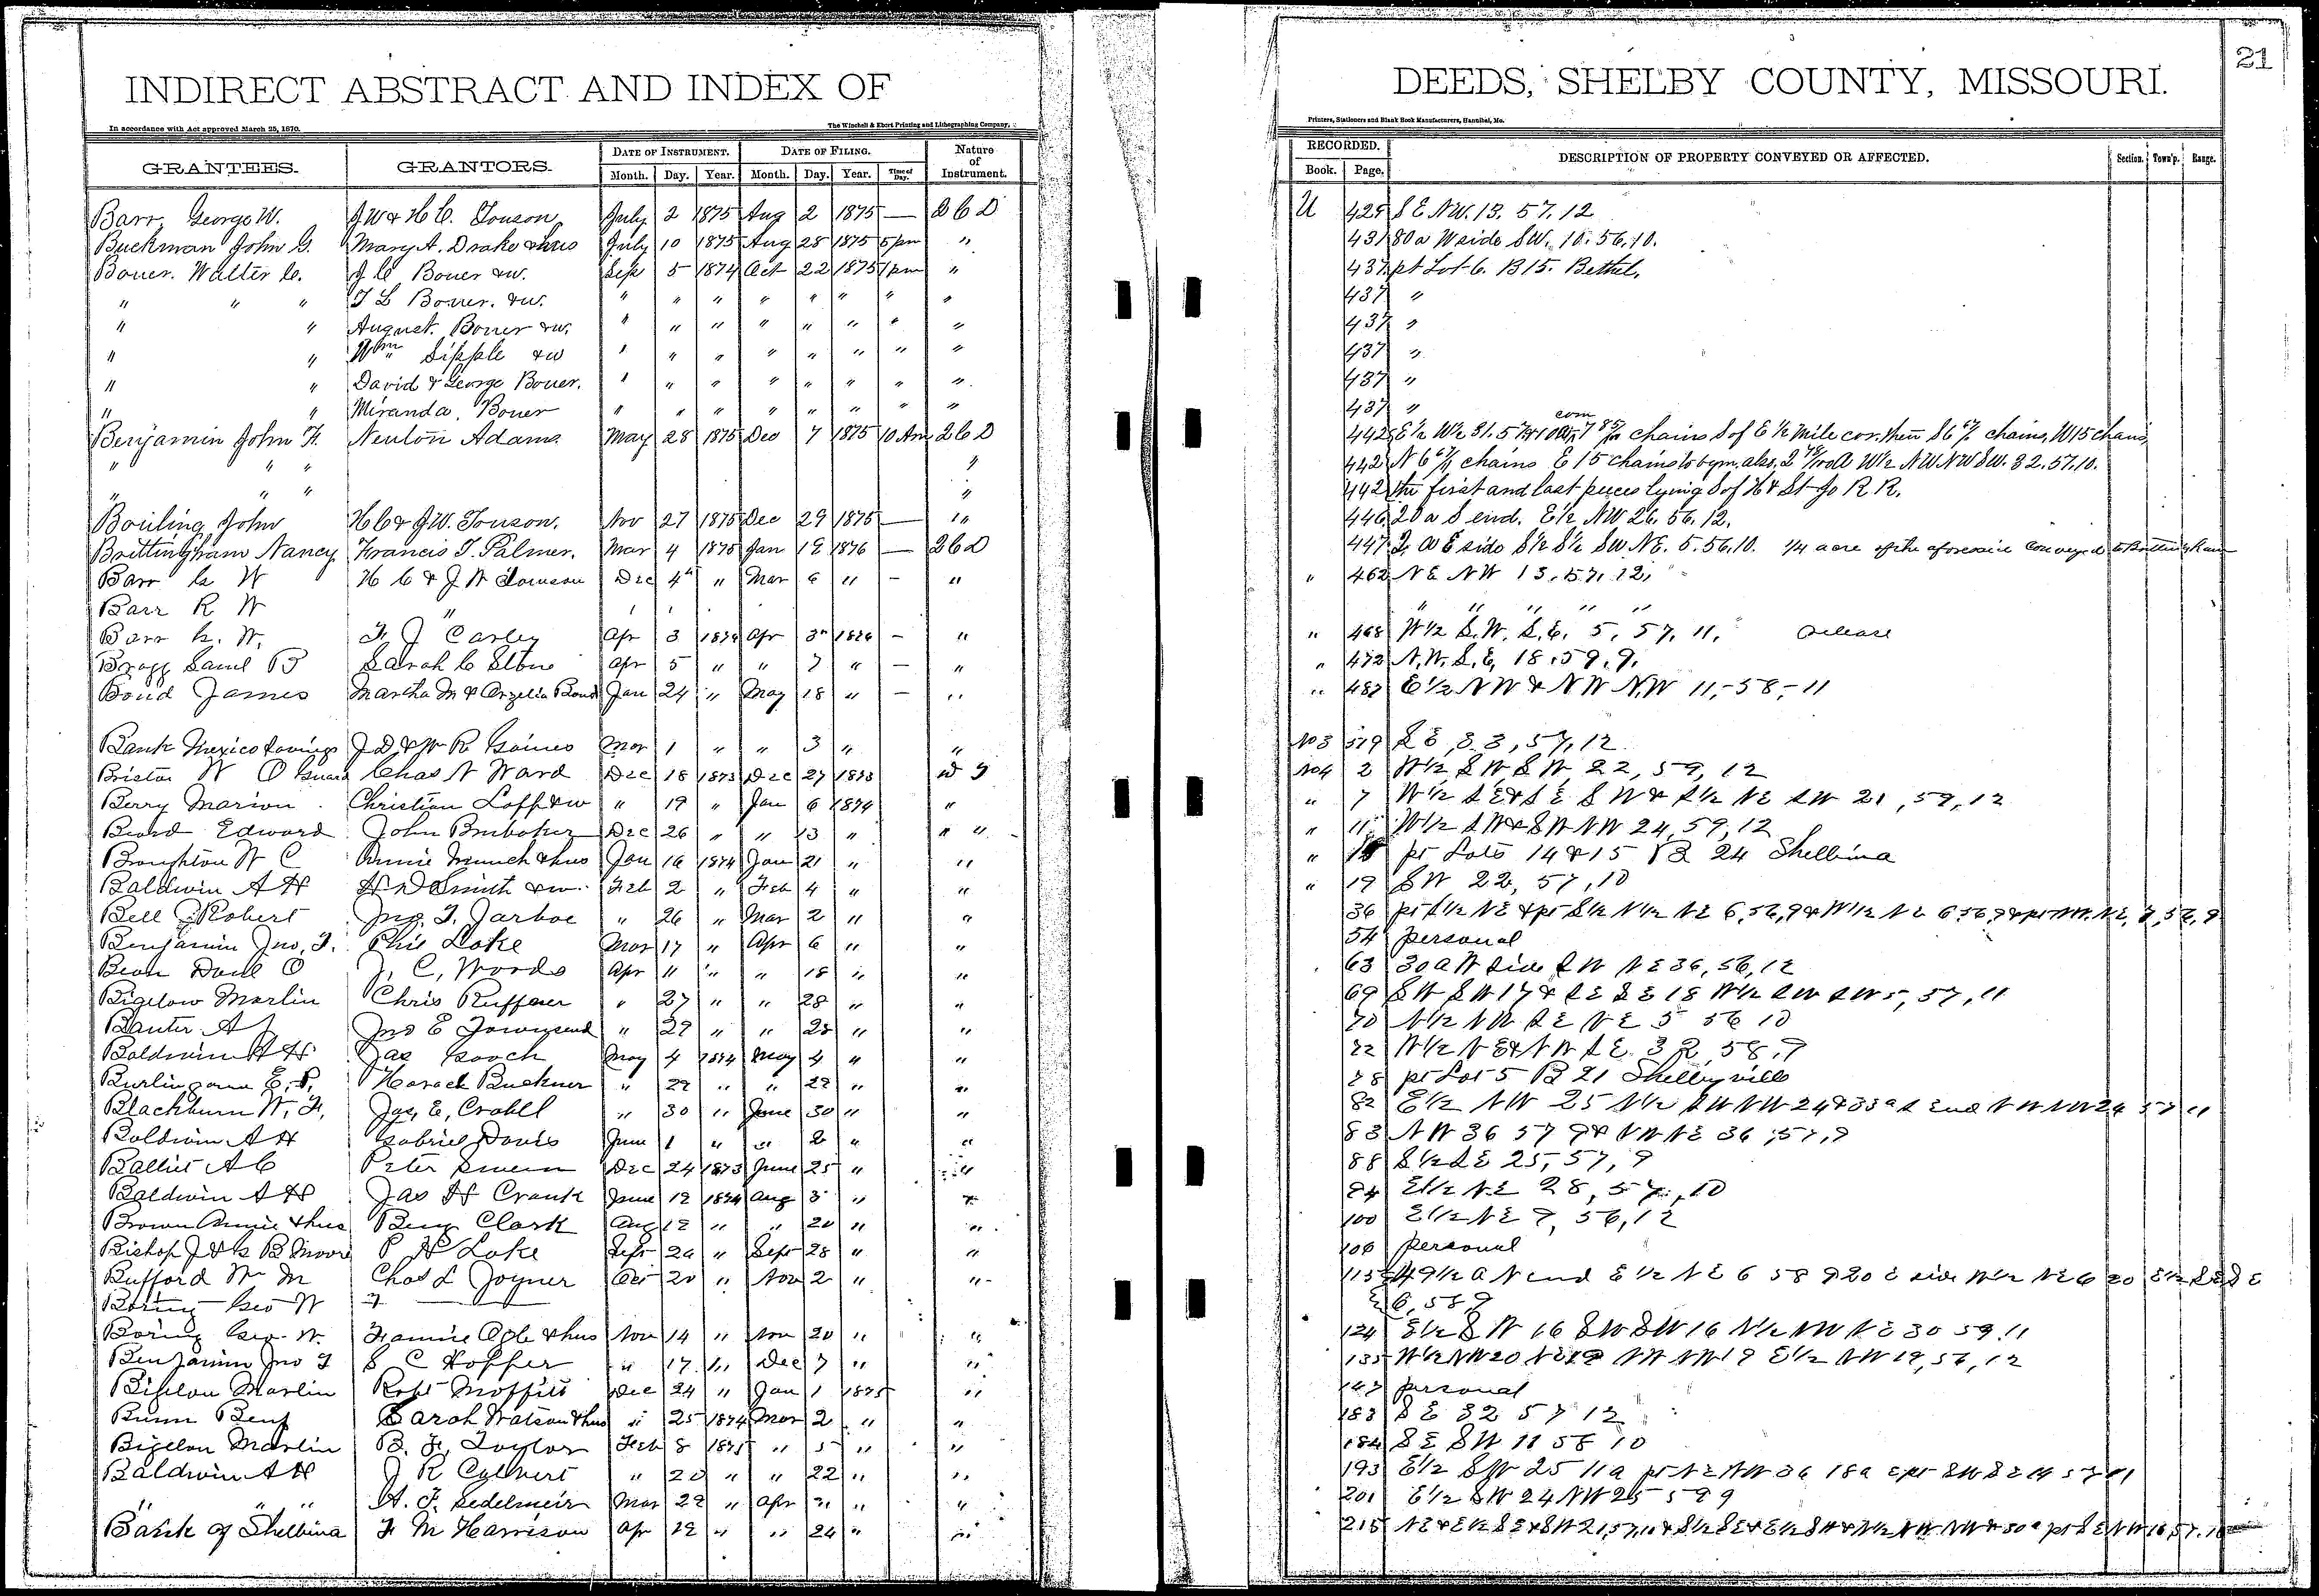 INDIRECT ABSTRACT AND INDEX OF DEEDS, SHELBY COUNTY, MISSOURI.
21
In accordance with Act approved March 25, 1870. The Winchell & Ebert Printing and Lithographing Company, Printers, Stationers and Blank Book Manufacturers, Hannibal, Mo.
GRANTEES. GRANTORS. DATE OF INSTRUMENT. DATE OF FILING. Nature of Instrument. RECORDED. DESCRIPTION OF PROPERTY CONVEYED OR AFFECTED. Section. Town'p. Range.
Month. Day. Year. Month. Day. Year. Time of Day. Book. Page.
Barr, George W. J W & H C. Touson July 2 1875 Aug 2 1875 — U 429 S E NW. 13. 57. 12
Buckman John G. Mary A. Drake & hus July 10 1875 Aug 28 1875 5 pm " 431 80 a W side SW. 10. 56. 10.
Bouer. Walter C. J C Bouer & w. Sep 5 1874 Oct 22 1875 1 pm " 437 pt Lot 6. B 15. Bethel.
" " " T L Bouer. & w. " " " " " " " " 437 "
" " August. Bouer & w. " " " " " " " " 437 "
" " Wm Sipple & w " " " " " " " " 437 "
" " David & George Bouer. " " " " " " " " 437 "
" " Miranda. Bouer " " " " " " " " 437 "
Benjamin John F. Newton Adams May 28 1875 Dec 7 1875 10 Am 442 E ½ W½ 31. 57 chains S of E ½ mile cor. then chains, W 15 chains,
" " " " 442 chains E 15 chains to bgm. also, W½ NW NW SW. 32. 57. 10.
" " " " 442 the first and last pieces lying S of H & St Jo R R.
Bouling John H C & J W. Touson. Nov 27 1875 Dec 29 1875 — " 446 20 a S end. E½ NW 26. 56. 12.
Brittingham Nancy Francis T. Palmer. Mar 4 1875 Jan 19 1876 — 447 E side S½ S½ SW NE. 5. 56. 10. ¼ acre of the aforesaid conveyed to Brittingham
Barr G W H C & J W Touson Dec 4" " Mar 6 " – " " 462 NE NW 13. 57. 12.
Barr R W " " " " " " "
Barr G. W. F J Carley Apr 3 Apr 3" – " " 468 W½ S.W. S.E. 5, 57, 11. release
Bragg Saml B Sarah C Stone Apr 5 " " 7 " – " " 472 N.W. S.E. 18. 59. 9.
Bond James Martha M & Arzelia Bond Jan 24 " May 18 " – " " 487 E½ NW & NW NW 11, - 58, - 11
Bank Mexico Savings J D & W R Gaines Mar 1 " " 3 " " No 3 519 S E, 57, 12
W O Guard Chas N Ward Dec 18 1873 Dec 27 1873 No 4 2 W½ SW SW 22, 59, 12
Berry Marion Christian Loff & w " 19 " Jan 6 1874 " " 7 W½ SE & SE SW & S½ NE SW 21, 59, 12
Beard Edward John Brubaker Dec 26 " " 13 " " " " 11 W½ SW & SW NW 24, 59, 12
Broughton W C Annie Munch & hus Jan 16 1874 Jan 21 " " " pt Lots 14 & 15 B 24 Shelbina
Baldwin A H H D Smith & w Feb 2 " Feb 4 " " " 19 SW 22, 57, 10
Bell Robert Jno. T. Jarboe " 26 " Mar 2 " " 36 pt S½ NE & pt S½ N½ NE 6, 56, 9 & W½ NE 6 56, 9
Benjamin Jno. F. Phil Lake Mar 17 " Apr 6 " " 54 personal
Bean Danl O J. C. Woods Apr 11 " " 18 " " 63 30 a W side SW NE 36, 56, 12
Bigelow Marlin Chris Ruffner " 27 " " 28 " " 69 SW SW 17 & SE SE 18 W½ SW SW 5, 57, 11
Banter A J Jno E Townsend " 29 " " 28 " " 70 N½ NW SE NE 5 56 10
Baldwin A H Jas Gooch May 4 1874 May 4 " " 72 W½ NE & NW SE 32, 58, 9
Burlingame E. P. Horace Buckner " 22 " " 22 " " 78 pt Lot 5 B 21 Shelbyville
Blackburn W. F. Jas. E. Crobll " 30 " June 30 " " 82 E½ NW 25 N½ SW NW 24 & 33 a S End NW NW 24 57 11
Baldwin A H Gabriel Davis June 1 " " 2 " " 83 NW 36 57 9 & NW NE 36, 57, 9
Balliet A C Peter Dec 24 1873 June 25 " " 88 S½ SE 25, 57, 9
Baldwin A H Jas H Crank June 12 1874 Aug 3 " " 94 E½ NE 28, 57, 10
Brown Annie & hus Benj Clark Aug 12 " " 20 " " 100 E½ NE 9, 56, 12
Bishop J & G B Moore P H Lake Sept 24 " Sept 28 " " 106 personal
Bufford Wm M Chas L Joyner Oct 20 " Nov 2 " " 115 49½ a N end E ½ NE 6 58 9 20 E side W½ NE 6 20 E½ SE SE
Boring Geo W 6, 58, 9
Boring Geo. W. Fannie Ogle & hus Nov 14 " Nov 20 " " 124 E½ SW 16 SW SW 16 N½ NW NE 30 59. 11
Benjamin Jno F S C Hopper " 17 " Dec 7 " " 135 W½ NW 20 NE 19 NW NW 19 E½ NW 19, 56, 12
Bigelow Marlin Robt Moffitt Dec 24 " Jan 1 1875 " 147 personal
Bunn Benj Sarah Watson & hus " 25 1874 Mar 2 " " 183 SE 32 57 12
Bigelow Marlin B. F. Taylor Feb 8 1875 " 5 " " 184 SE SW 11 58 10
Baldwin A H J R Culvert " 20 " " 22 " " 193 E½ SW 25 11 a pt NE NW 36 18 a
" " " H. F. Sedelmeir Mar 22 " Apr " " 201 E½ SW 24 NW 25 59 9
Bank of Shelbina F M Harrison Apr 12 " " 24 " " 215